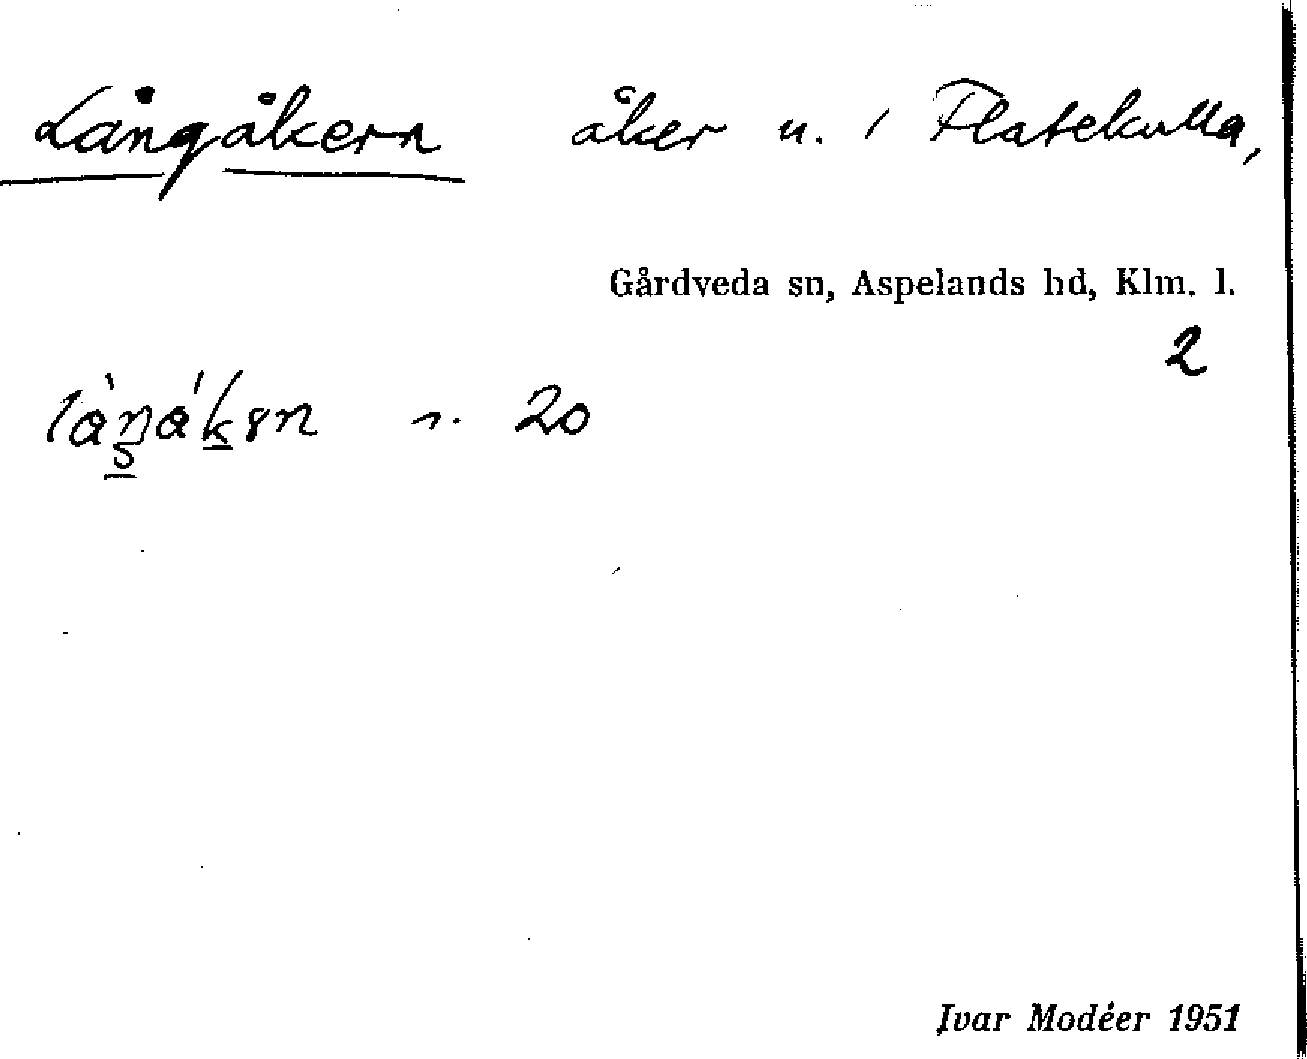 Långåkern åker u. i Flatekulla,
Gårdveda sn, Aspelands hd, Klm. l.
2
20
Ivar Modéer 1951